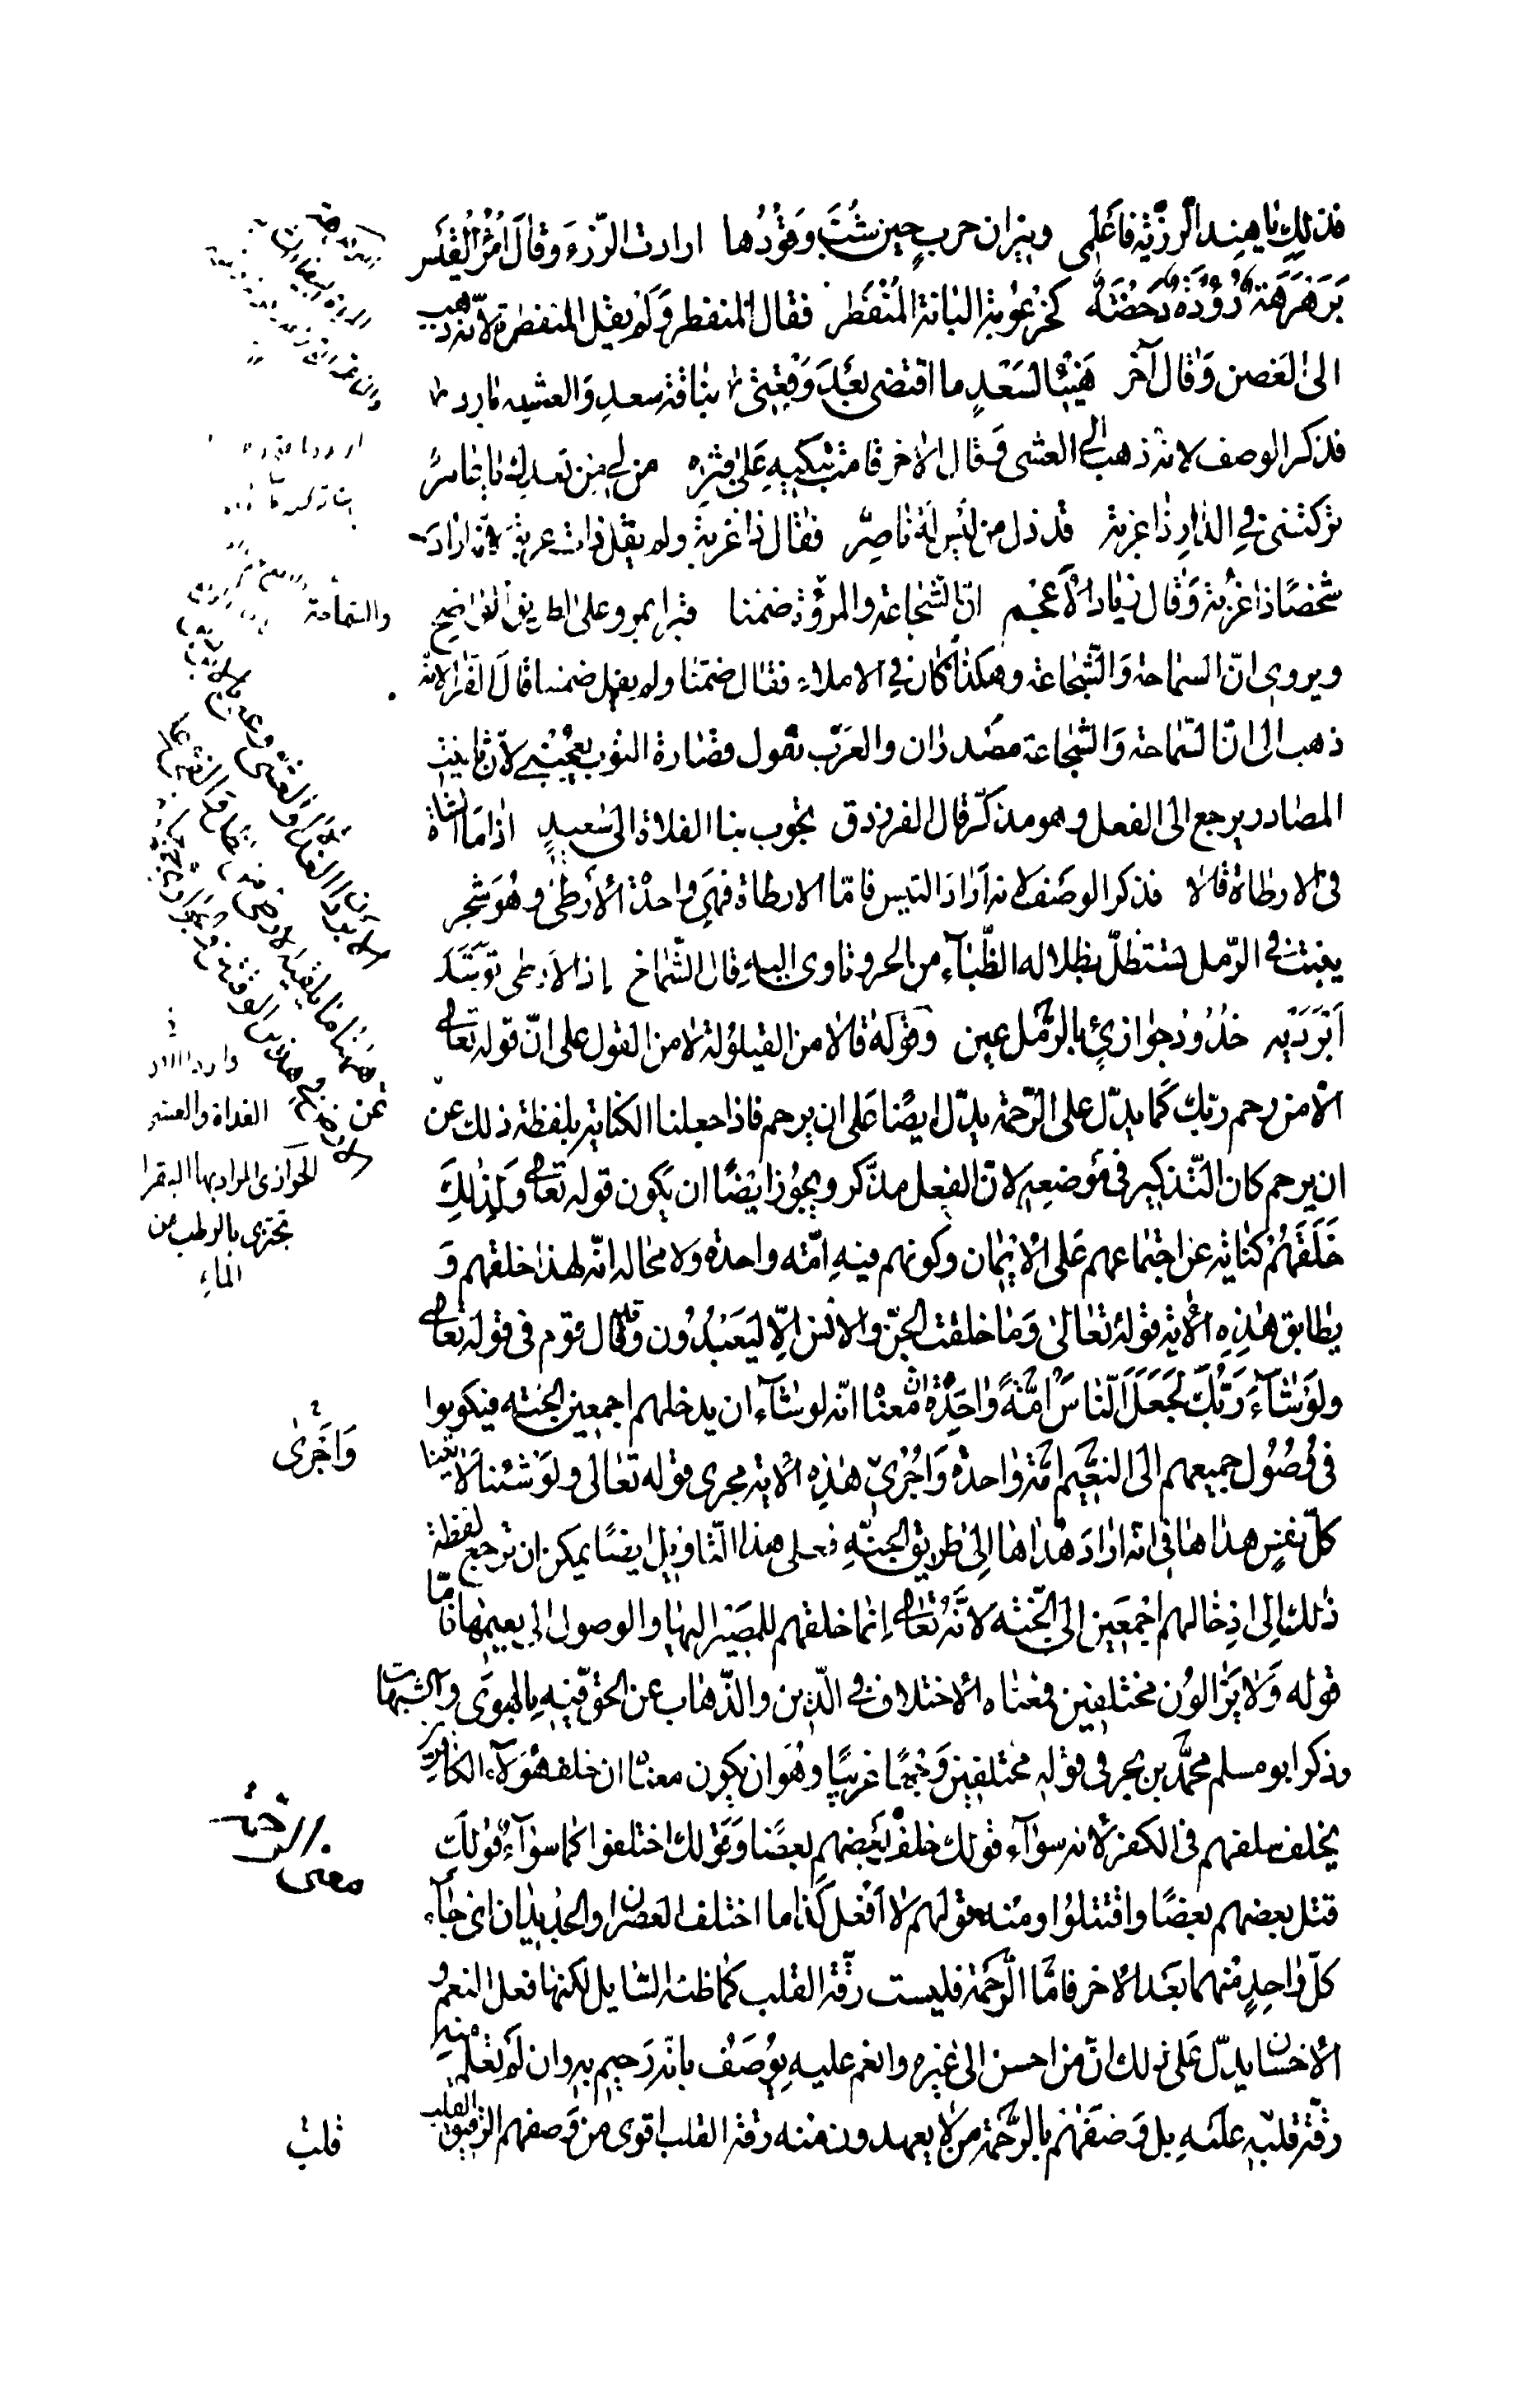 فذلك يا هند الرزية فاعلمي ونيران حرب حين شب وقودها ارادت الرزء وقال امرؤ القيس
برهرهة رؤدة رخصة كخرعوبة البانة المنفطر فقال المنفطر ولم يقل المنفطرة لانه ذهب
الى الغصن وقال آخر هنيئا لسعد ما اقتضى بعد وقعتي بناقة سعد والعشية بارد
فذكر الوصف لانه ذهب الى العشي وقال الاخر قامت تبكيه على قبره من لي من بعدك يا عامر
تركتني في الدار ذا غربة قد ذل من ليس له ناصر فقال ذا غربة ولم يقل ذات غربة لانه اراد
شخصا ذا غربة وقال زياد الاعجم ان الشجاعة والمروة ضمنا قبرا بمرو على الطريق الواضح
ويروى ان السماحة والشجاعة وهكذا كان في الاملاء فقال ضمنا ولم يقل ضمنتا قال الفراء لانه
ذهب الى ان السماحة والشجاعة مصدران والعرب تقول قصارة الثوب يعجبني لان تانيث
المصادر يرجع الى الفعل وهو مذكر قال الفرزدق تجوب بنا الفلاة الى سعيد اذا ما الشاة
في الارطاة قالا فذكر الوصف لانه اراد التيس فاما الارطاة فهي واحدة الارطى وهو شجر
ينبت في الرمل تستظل بظلاله الظباء من الحر وتاوى اليه قال الشماخ إذا الارطى توسد
ابرديه خدود جوازئ بالرمل عين وقوله قالا من القيلولة لا من القول على ان قوله تعالى
الا من رحم ربك كما يدل على الرحمة يدل ايضا على ان يرحم فاذا جعلنا الكناية بلفظة ذلك عن
ان يرحم كان التذكير في موضعه لان الفعل مذكر ويجوز ايضا ان يكون قوله تعالى ولذلك
خلقهم كناية عن اجتماعهم على الايمان وكونهم فيه امة واحدة ولا محالة انه لهذا خلقهم و
يطابق هذه الاية قوله تعالى وما خلقت الجن والانس الا ليعبدون وقد قال قوم في قوله تعالى
ولو شاء ربك لجعل الناس امة واحدة ان معناه انه لو شاء ان يدخلهم اجمعين الجنة فيكونوا
في وصول جميعهم الى النعيم امة واحدة واجرى هذه الاية مجرى قوله تعالى ولو شئنا لاتينا
كل نفس هداها في انه اراد هداها الى طريق الجنة فعلى هذا التاويل ايضا يمكن ان ترجع لفظة
ذلك الى ادخالهم اجمعين الى الجنة لانه تعالى انما خلقهم للمصير اليها والوصول الى نعيمها فاما
قوله ولا يزالون مختلفين فمعناه الاختلاف في الدين والذهاب عن الحق فيه بالهوى والشبهات
وذكر ابو مسلم محمد بن بحر في قوله مختلفين وجها غريبا وهو ان يكون معناه ان خلف هؤلاء الكافرين
يخلف سلفهم في الكفر لانه سواء قولك خلف بعضهم بعضا وقولك اختلفوا كما سواء قولك
قتل بعضهم بعضا واقتتلوا ومنه قولهم لا افعل كذا ما اختلف العصران والجديدان اى جاء
كل واحد منهما بعد الاخر فاما الرحمة فليست رقة القلب كما ظنه السايل لكنها فعل النعم و
الاحسان يدل على ذلك ان من احسن الى غيره وانعم عليه يوصف بانه رحيم به وان لم تعلم منه
رقة قلبه عليه بل وصفهم بالرحمة من لا يعهدون منه رقة القلب اقوى من وصفهم الرقيق القلب
والسماحة
الغداة والعشي
الجوازى المراد بها البقر
تجتزى بالرطب من
الماء
واجرى
معنى الرحمة
قلب